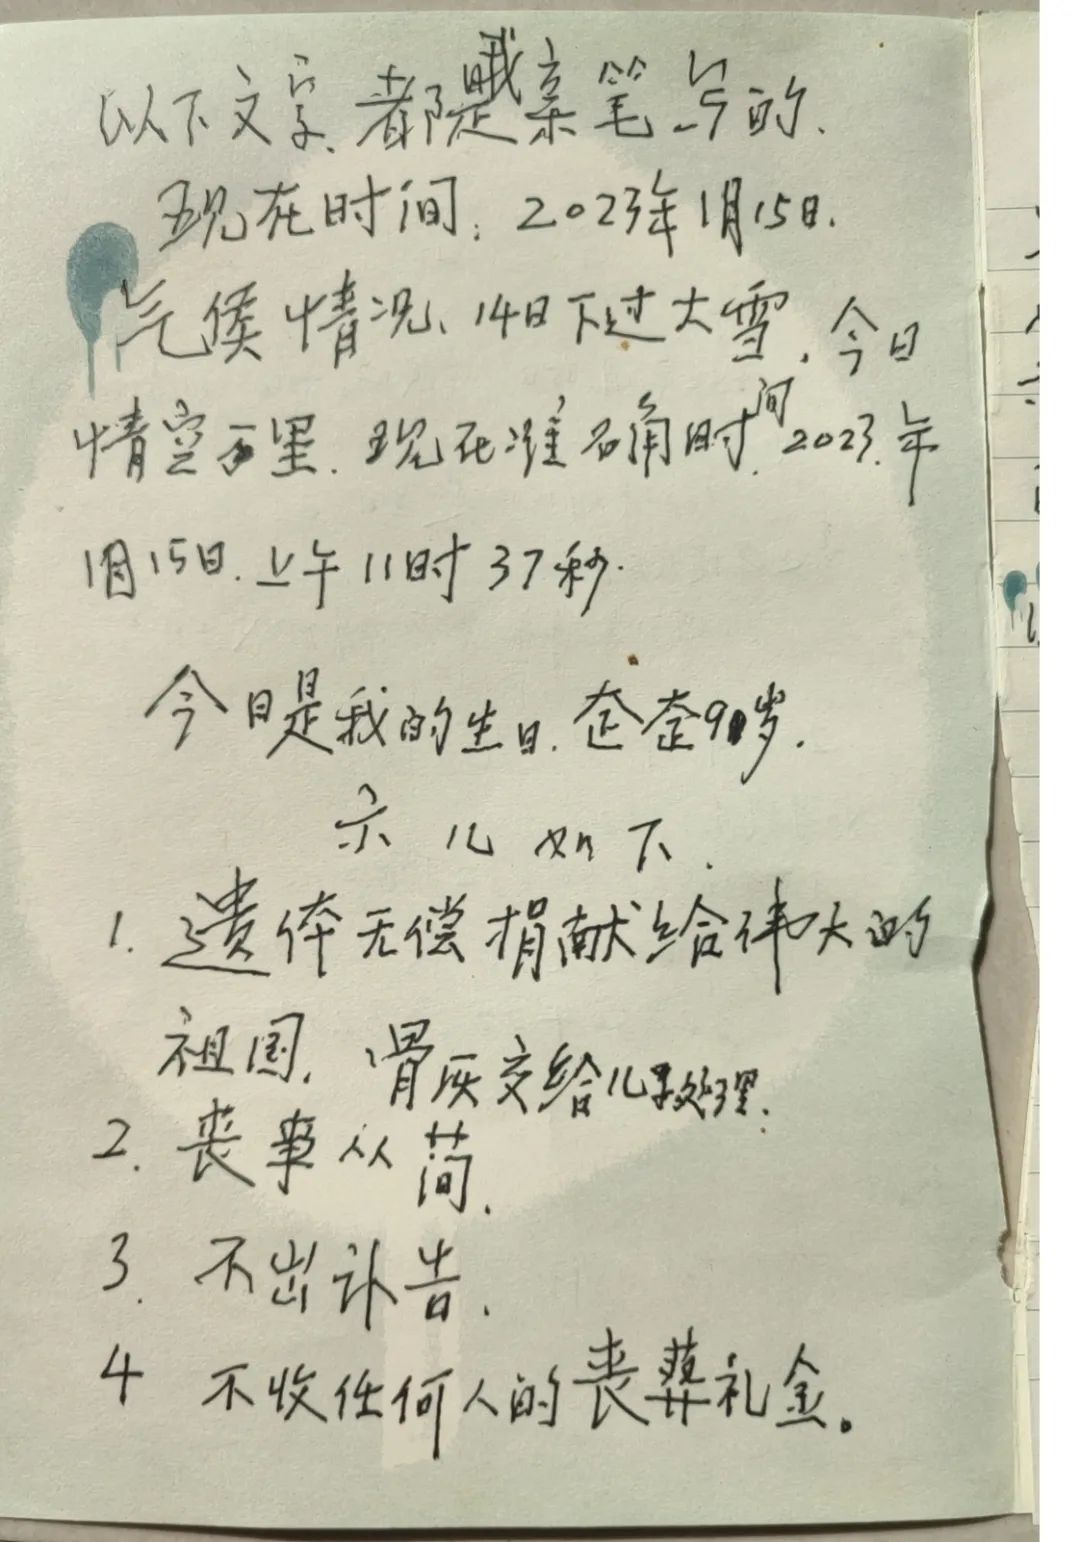 以下文字、都是我亲笔写的.
现在时间: 2023年1月15日.
气候情况、14日下过大雪. 今日
情空万里. 现在准确时间. 2023.年
1月15日. 上午11时37秒.
今日是我的生日. 歪歪90岁.
示儿如下.
1. 遗体无偿捐献给伟大的
祖国, 骨灰交给儿子处理.
2. 丧事从简.
3. 不出讣告.
4 不收任何人的丧葬礼金。